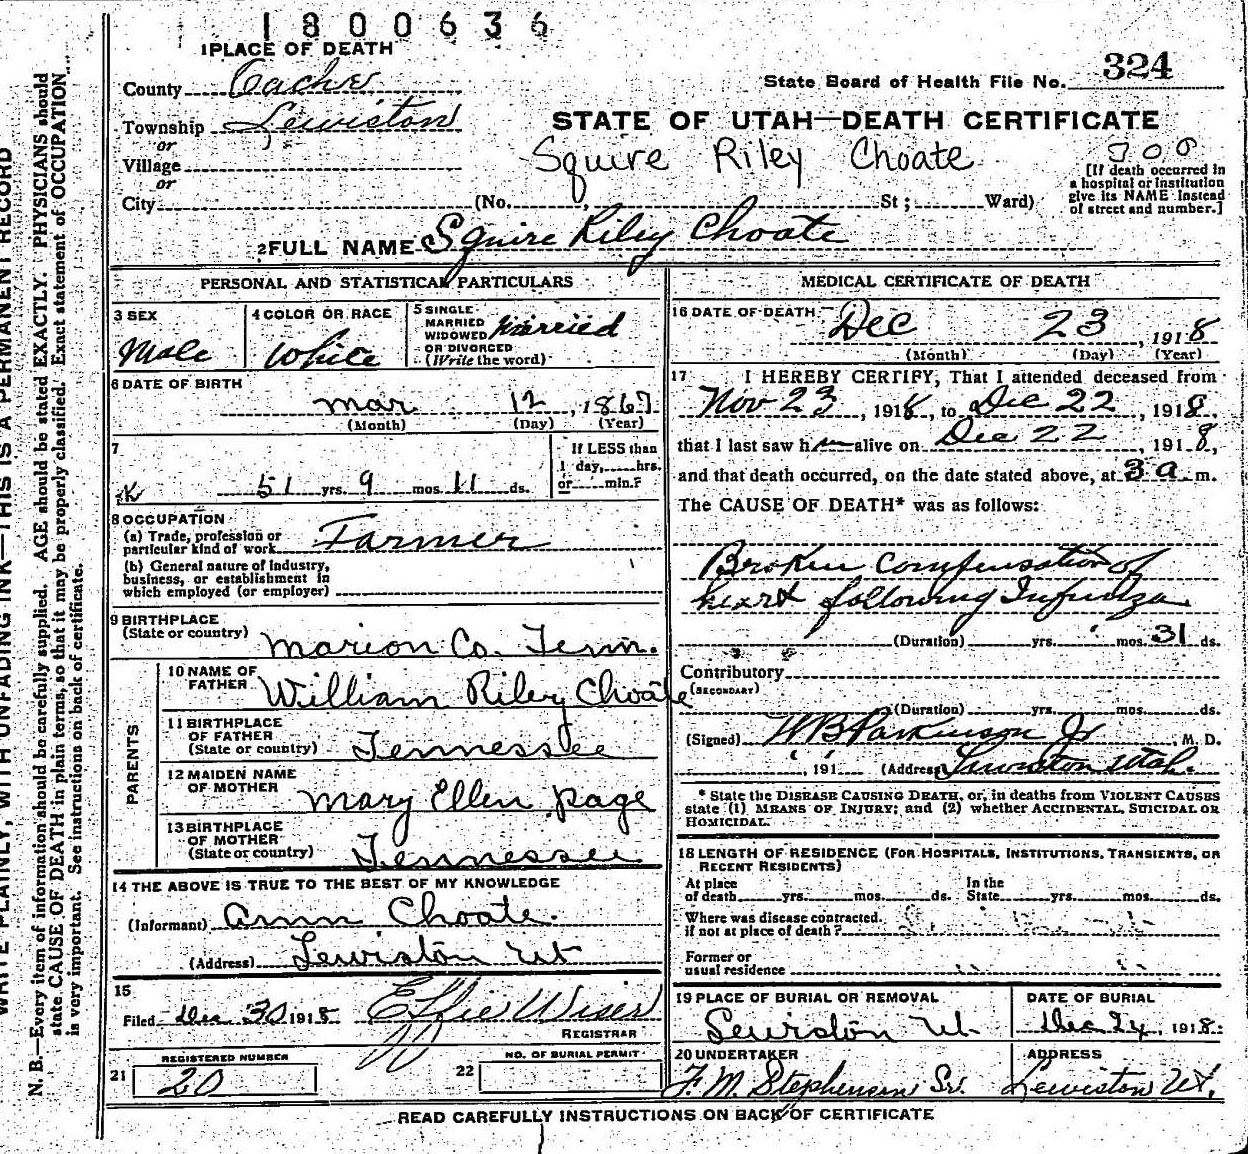 1800636
1 PLACE OF DEATH
County Cache
State Board of Health File No. 324
Township Lewiston
or
STATE OF UTAH—DEATH CERTIFICATE
Village
or
Squire Riley Choate
300
[If death occurred in
a hospital or institution
give its NAME instead
of street and number.]
City (No. , St ; Ward)
2 FULL NAME Squire Riley Choate
PERSONAL AND STATISTICAL PARTICULARS
3 SEX
Male
4 COLOR OR RACE
White
5 SINGLE
MARRIED
WIDOWED
OR DIVORCED
(Write the word)
Married
6 DATE OF BIRTH
Mar 12, 1867
(Month) (Day) (Year)
7
51 yrs. 9 mos. 11 ds.
If LESS than
1 day, hrs.
or min.?
8 OCCUPATION
(a) Trade, profession or
particular kind of work Farmer
(b) General nature of industry,
business, or establishment in
which employed (or employer)
9 BIRTHPLACE
(State or country) Marion Co. Tenn.
PARENTS
10 NAME OF
FATHER William Riley Choate
11 BIRTHPLACE
OF FATHER
(State or country) Tennessee
12 MAIDEN NAME
OF MOTHER Mary Ellen Page
13 BIRTHPLACE
OF MOTHER
(State or country) Tennessee
14 THE ABOVE IS TRUE TO THE BEST OF MY KNOWLEDGE
(Informant) Ann Choate.
(Address) Lewiston Ut
15
Filed Dec 30 1918 Effie Wiser
REGISTRAR
REGISTERED NUMBER
21 20
NO. OF BURIAL PERMIT
22
MEDICAL CERTIFICATE OF DEATH
16 DATE OF DEATH
Dec 23, 1918
(Month) (Day) (Year)
17 I HEREBY CERTIFY, That I attended deceased from
Nov 23, 1918, to Dec 22, 1918,
that I last saw him alive on Dec 22, 1918,
and that death occurred, on the date stated above, at 3 a m.
The CAUSE OF DEATH* was as follows:
Broken Compensation of
heart following Influenza
(Duration) yrs. mos. 31 ds.
Contributory
(SECONDARY)
(Duration) yrs. mos. ds.
(Signed) W B Parkinson Jr, M. D.
, 191 (Address) Lewiston Utah.
* State the DISEASE CAUSING DEATH, or, in deaths from VIOLENT CAUSES
state (1) MEANS OF INJURY; and (2) whether ACCIDENTAL, SUICIDAL OR
HOMICIDAL.
18 LENGTH OF RESIDENCE (FOR HOSPITALS, INSTITUTIONS, TRANSIENTS, OR
RECENT RESIDENTS)
At place
of death yrs. mos. ds.
In the
State yrs. mos. ds.
Where was disease contracted.
if not at place of death?
Former or
usual residence
19 PLACE OF BURIAL OR REMOVAL
Lewiston Ut.
DATE OF BURIAL
Dec 24, 1918
20 UNDERTAKER
F. M. Stephenson Sr.
ADDRESS
Lewiston Ut.
READ CAREFULLY INSTRUCTIONS ON BACK OF CERTIFICATE
WRITE PLAINLY, WITH UNFADING INK—THIS IS A PERMANENT RECORD
N. B.—Every item of information should be carefully supplied. AGE should be stated EXACTLY. PHYSICIANS should
state CAUSE OF DEATH in plain terms, so that it may be properly classified. Exact statement of OCCUPATION
is very important. See instructions on back of certificate.